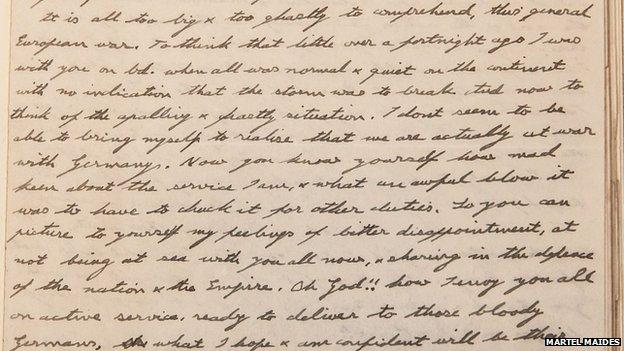 It is all too big & too ghastly to comprehend, this general
European war. To think that little over a fortnight ago I was
with you on bd. when all was normal & quiet on the continent
with no indication that the storm was to break. And now to
think of the apalling & ghastly situation. I dont seem to be
able to bring myself to realise that we are actually at war
with Germany. Now you know yourself how mad
keen about the service I am, & what an awful blow it
was to have to chuck it for other duties. So you can
picture to yourself my feelings of bitter disappointment, at
not being at sea with you all now, & sharing in the defence
of the nation & the Empire. Oh God!! how I envy you all
on active service, ready to deliver to those bloody
Germans, what I hope & am confident will be their
MARTEL MAIDES